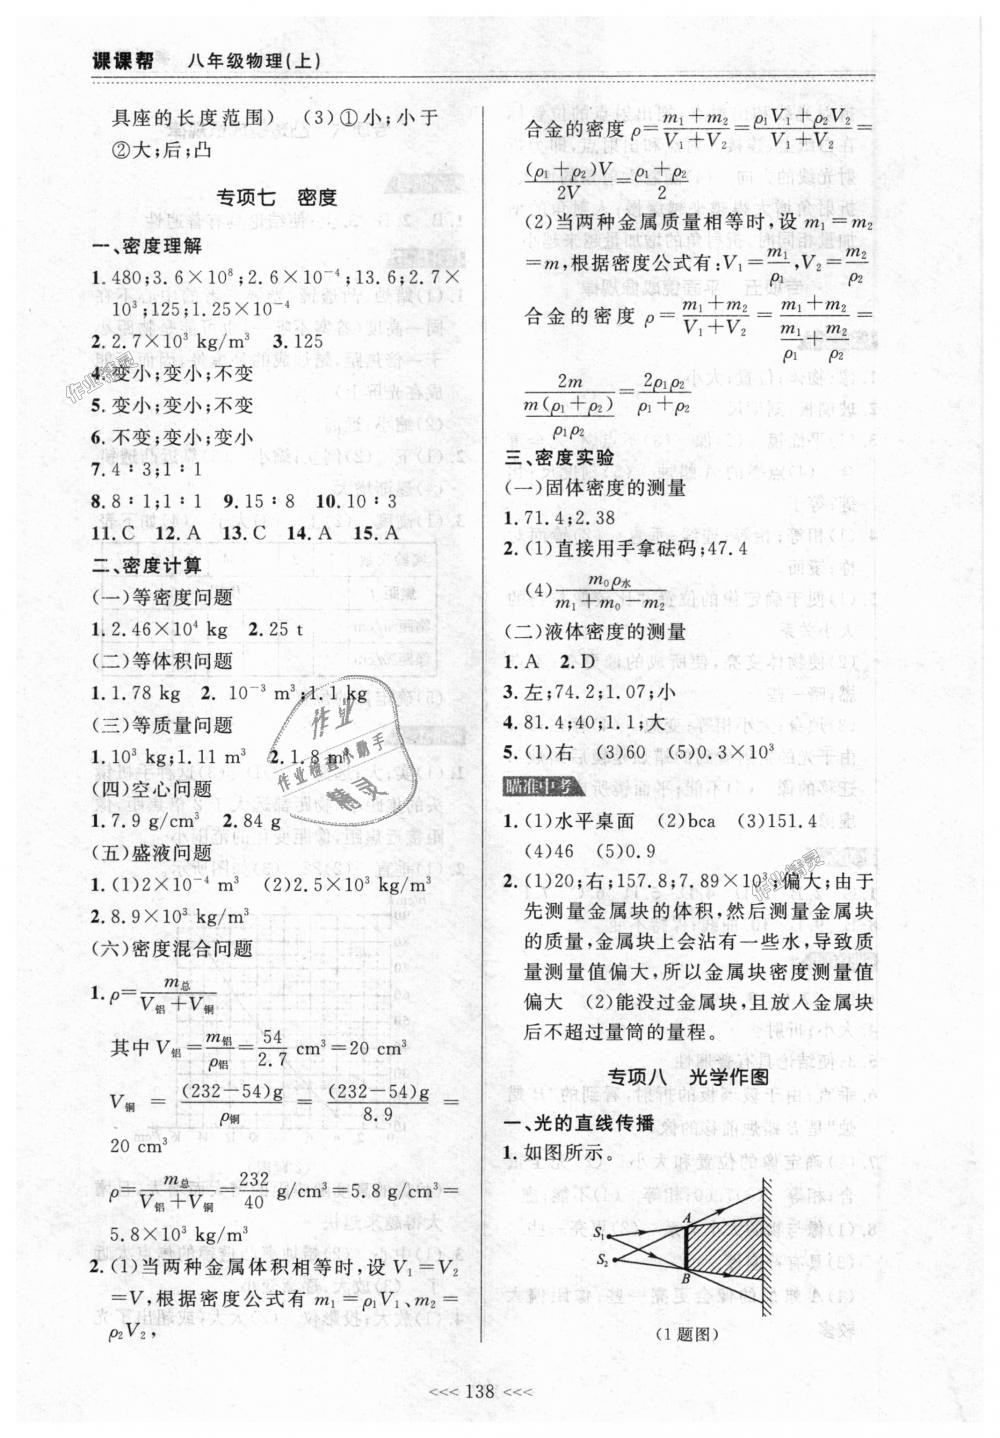 课课帮 八年级物理(上)
具座的长度范围) (3)①小;小于
②大;后;凸
专项七 密度
一、密度理解
1. 480;3.6×10⁸;2.6×10⁻⁴;13.6;2.7×
10³;125;1.25×10⁻⁴
2. 2.7×10³ kg/m³ 3. 125
4. 变小;变小;不变
5. 变小;变小;不变
6. 不变;变小;变小
7. 4∶3;1∶1
8. 8∶1;1∶1 9. 15∶8 10. 10∶3
11. C 12. A 13. C 14. A 15. A
二、密度计算
(一)等密度问题
1. 2.46×10⁴ kg 2. 25 t
(二)等体积问题
1. 1.78 kg 2. 10⁻³ m³;1.1 kg
(三)等质量问题
1. 10³ kg;1.11 m³ 2. 1.8 m³
(四)空心问题
1. 7.9 g/cm³ 2. 84 g
(五)盛液问题
1. (1)2×10⁻⁴ m³ (2)2.5×10³ kg/m³
2. 8.9×10³ kg/m³
(六)密度混合问题
1. ρ=m总/(V铝+V铜)
其中 V铝=m铝/ρ铝=54/2.7 cm³=20 cm³
V铜 = (232−54)g/ρ铜 = (232−54)g/8.9 =
20 cm³
ρ=m总/(V铝+V铜)=232/40 g/cm³=5.8 g/cm³=
5.8×10³ kg/m³
2. (1)当两种金属体积相等时,设 V₁=V₂
=V,根据密度公式有 m₁=ρ₁V₁,m₂=
ρ₂V₂,
合金的密度 ρ=(m₁+m₂)/(V₁+V₂)=(ρ₁V₁+ρ₂V₂)/(V₁+V₂)=
(ρ₁+ρ₂)V/2V=(ρ₁+ρ₂)/2
(2)当两种金属质量相等时,设 m₁=m₂
=m,根据密度公式有:V₁=m₁/ρ₁,V₂=m₂/ρ₂
合金的密度 ρ=(m₁+m₂)/(V₁+V₂)=(m₁+m₂)/(m₁/ρ₁+m₂/ρ₂)=
2m/(m(ρ₁+ρ₂)/ρ₁ρ₂)=2ρ₁ρ₂/(ρ₁+ρ₂)
三、密度实验
(一)固体密度的测量
1. 71.4;2.38
2. (1)直接用手拿砝码;47.4
(4) m₀ρ水/(m₁+m₀−m₂)
(二)液体密度的测量
1. A 2. D
3. 左;74.2;1.07;小
4. 81.4;40;1.1;大
5. (1)右 (3)60 (5)0.3×10³
瞄准中考
1. (1)水平桌面 (2)bca (3)151.4
(4)46 (5)0.9
2. (1)20;右;157.8;7.89×10³;偏大;由于
先测量金属块的体积,然后测量金属块
的质量,金属块上会沾有一些水,导致质
量测量值偏大,所以金属块密度测量值
偏大 (2)能没过金属块,且放入金属块
后不超过量筒的量程。
专项八 光学作图
一、光的直线传播
1. 如图所示。
S₁
S₂
A
B
(1题图)
<<< 138 <<<
作业
作业检查小助手
精灵
作业精灵
作业精灵